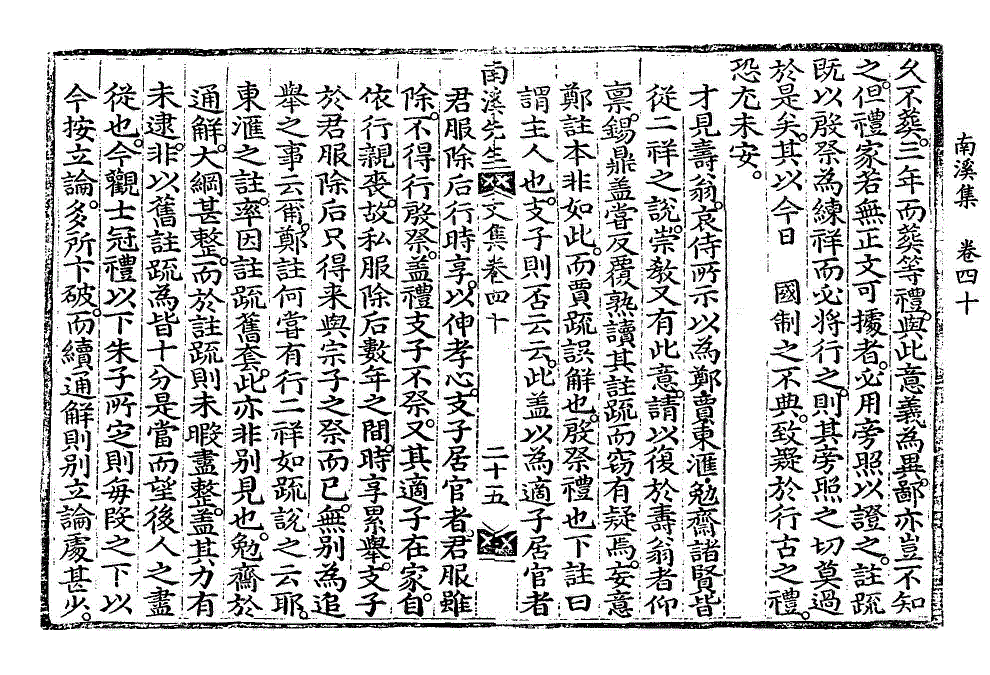 南溪集　卷四十
久不葬。三年而葬等禮。與此意義為異。鄙亦豈不知
之。但禮家若無正文可據者。必用旁照以證之。註疏
既以殷祭為練祥而必將行之。則其旁照之切莫過
於是矣。其以今日　國制之不典。致疑於行古之禮。
恐尤未安。
才見壽翁。哀侍所示以為鄭,賈,東滙,勉齋諸賢皆
從二祥之說。崇教又有此意。請以復於壽翁者仰
稟。錫鼎盖嘗反覆熟讀其註疏而窃有疑焉。妄意
鄭註本非如此。而賈疏誤解也。殷祭禮也下註曰
謂主人也。支子則否云云。此盖以為適子居官者
南溪先生文集卷四十　二十五
君服除后行時享。以伸孝心。支子居官者。君服雖
除。不得行殷祭。盖禮支子不祭。又其適子在家。自
依行親喪。故私服除后數年之間。時享累舉。支子
於君服除后只得來與宗子之祭而已。無別為追
舉之事云爾。鄭註何嘗有行二祥如疏說之云耶。
東滙之註。率因註疏舊套。此亦非別見也。勉齋於
通解。大綱甚整。而於註疏則未暇盡整。盖其力有
未逮。非以舊註疏為皆十分是當而望後人之盡
從也。今觀士冠禮以下朱子所定則每段之下以
今按立論。多所卞破。而續通解則别立論處甚少。